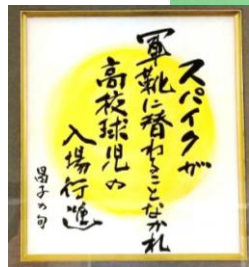 スパイクが
軍靴に替わることなかれ
高校球児の
入場行進
昌子の句